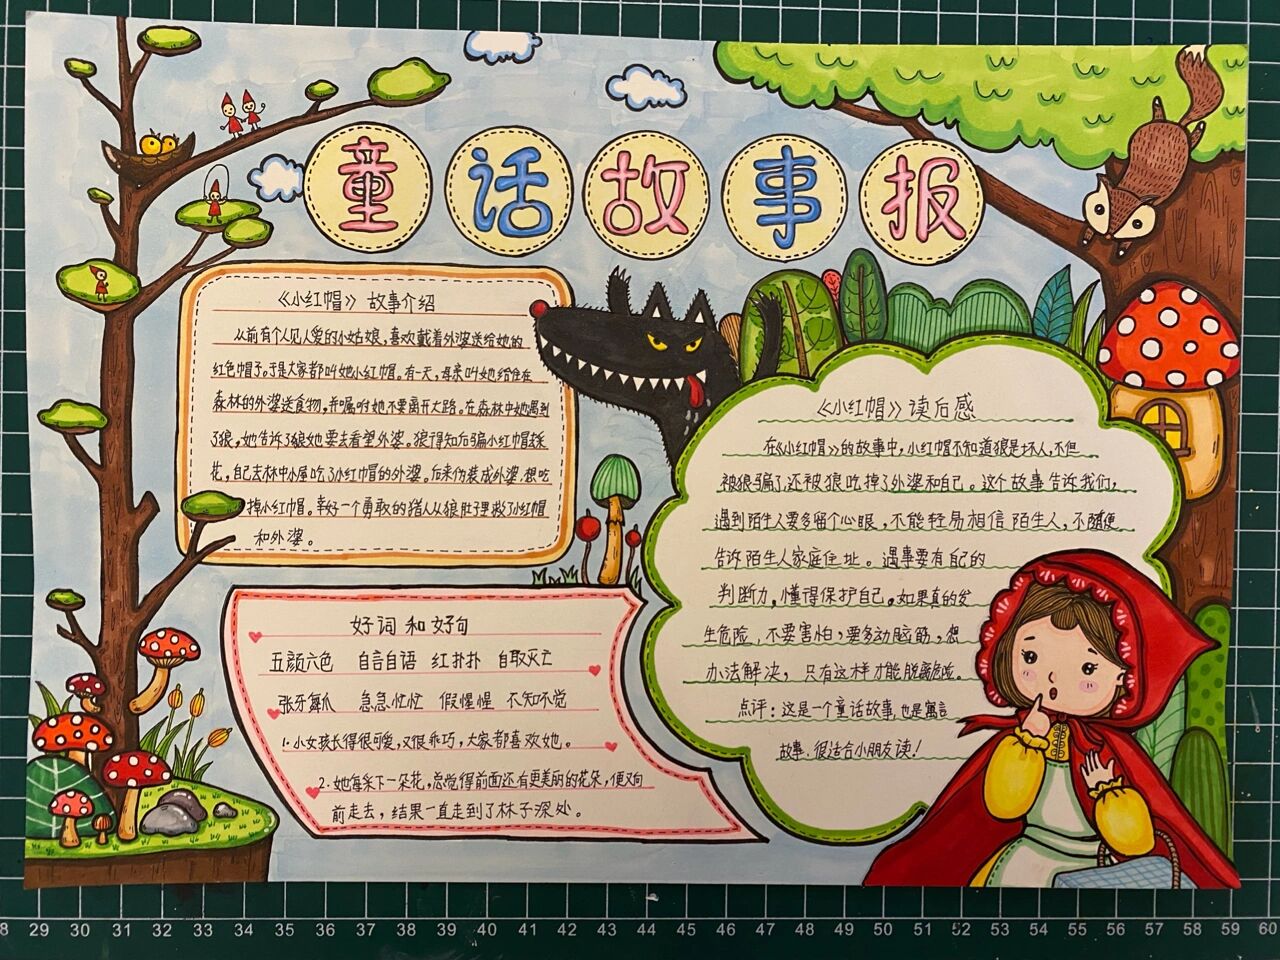 童话故事报
《小红帽》故事介绍
从前有个人见人爱的小姑娘,喜欢戴着外婆送给她的
红色帽子。于是大家都叫她小红帽。有一天,母亲叫她给住在
森林的外婆送食物,并嘱咐她不要离开大路。在森林中她遇到
了狼。她告诉了狼她要去看望外婆。狼得知后骗小红帽采
花,自己去林中小屋吃了小红帽的外婆。后来伪装成外婆,想吃
掉小红帽。幸好一个勇敢的猎人从狼肚子里救了小红帽
和外婆。
好词和好句
五颜六色 自言自语 红扑扑 自取灭亡
张牙舞爪 急急忙忙 假惺惺 不知不觉
1.小女孩长得很可爱,又很乖巧,大家都喜欢她。
2.她每采下一朵花,总觉得前面还有更美丽的花朵,便又向
前走去,结果一直走到了林子深处。
《小红帽》读后感
在《小红帽》的故事中,小红帽不知道狼是坏人,不但
被狼骗了还被狼吃掉了外婆和自己。这个故事告诉我们,
遇到陌生人要多留个心眼,不能轻易相信陌生人,不随便
告诉陌生人家庭住址。遇事要有自己的
判断力,懂得保护自己。如果真的发
生危险,不要害怕,要多动脑筋,想
办法解决,只有这样才能脱离危险。
点评:这是一个童话故事,也是寓言
故事.很适合小朋友读!
28 29 30 31 32 33 34 35 36 37 38 39 40 41 42 43 44 45 46 47 48 49 50 51 52 53 54 55 56 57 58 59 60